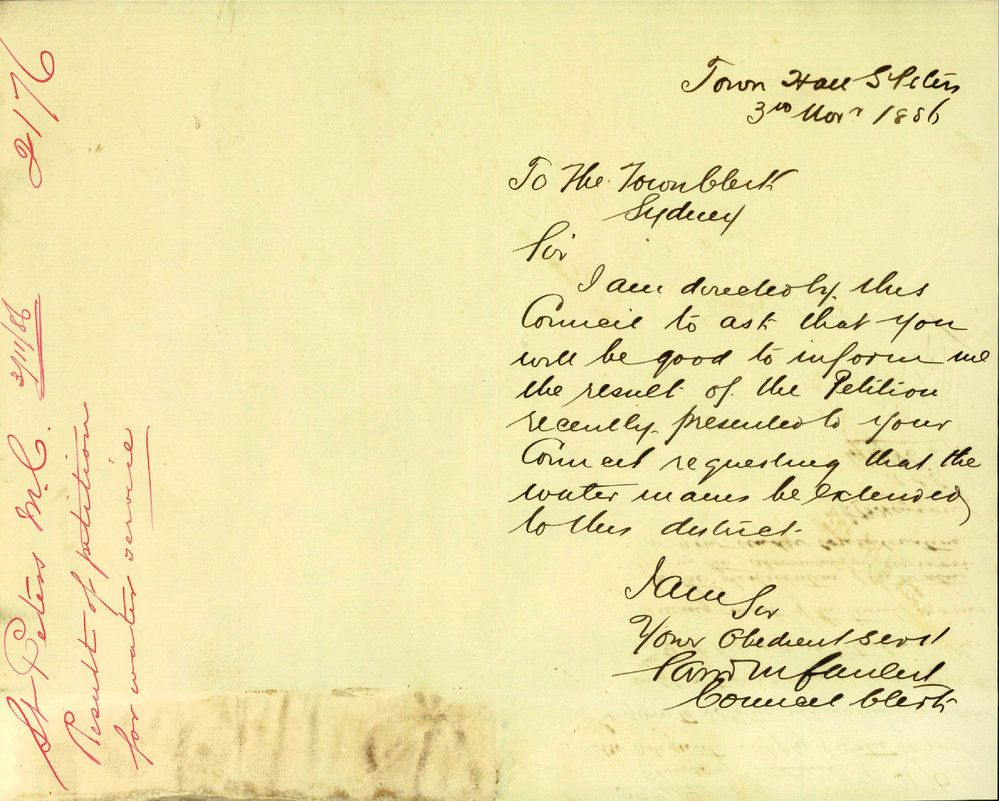 Town Hall St Peters
3rd Novr 1886
To The Town Clerk
Sydney
Sir
I am directed by this
Council to ask that you
will be good to inform me
the result of the Petition
recently presented to your
Council requesting that the
water mains be extended
to this district.
I am
Sir
Your Obedient Servt
Council Clerk
St Peters M.C. 3/11/86 2176
Result of petition
for water service